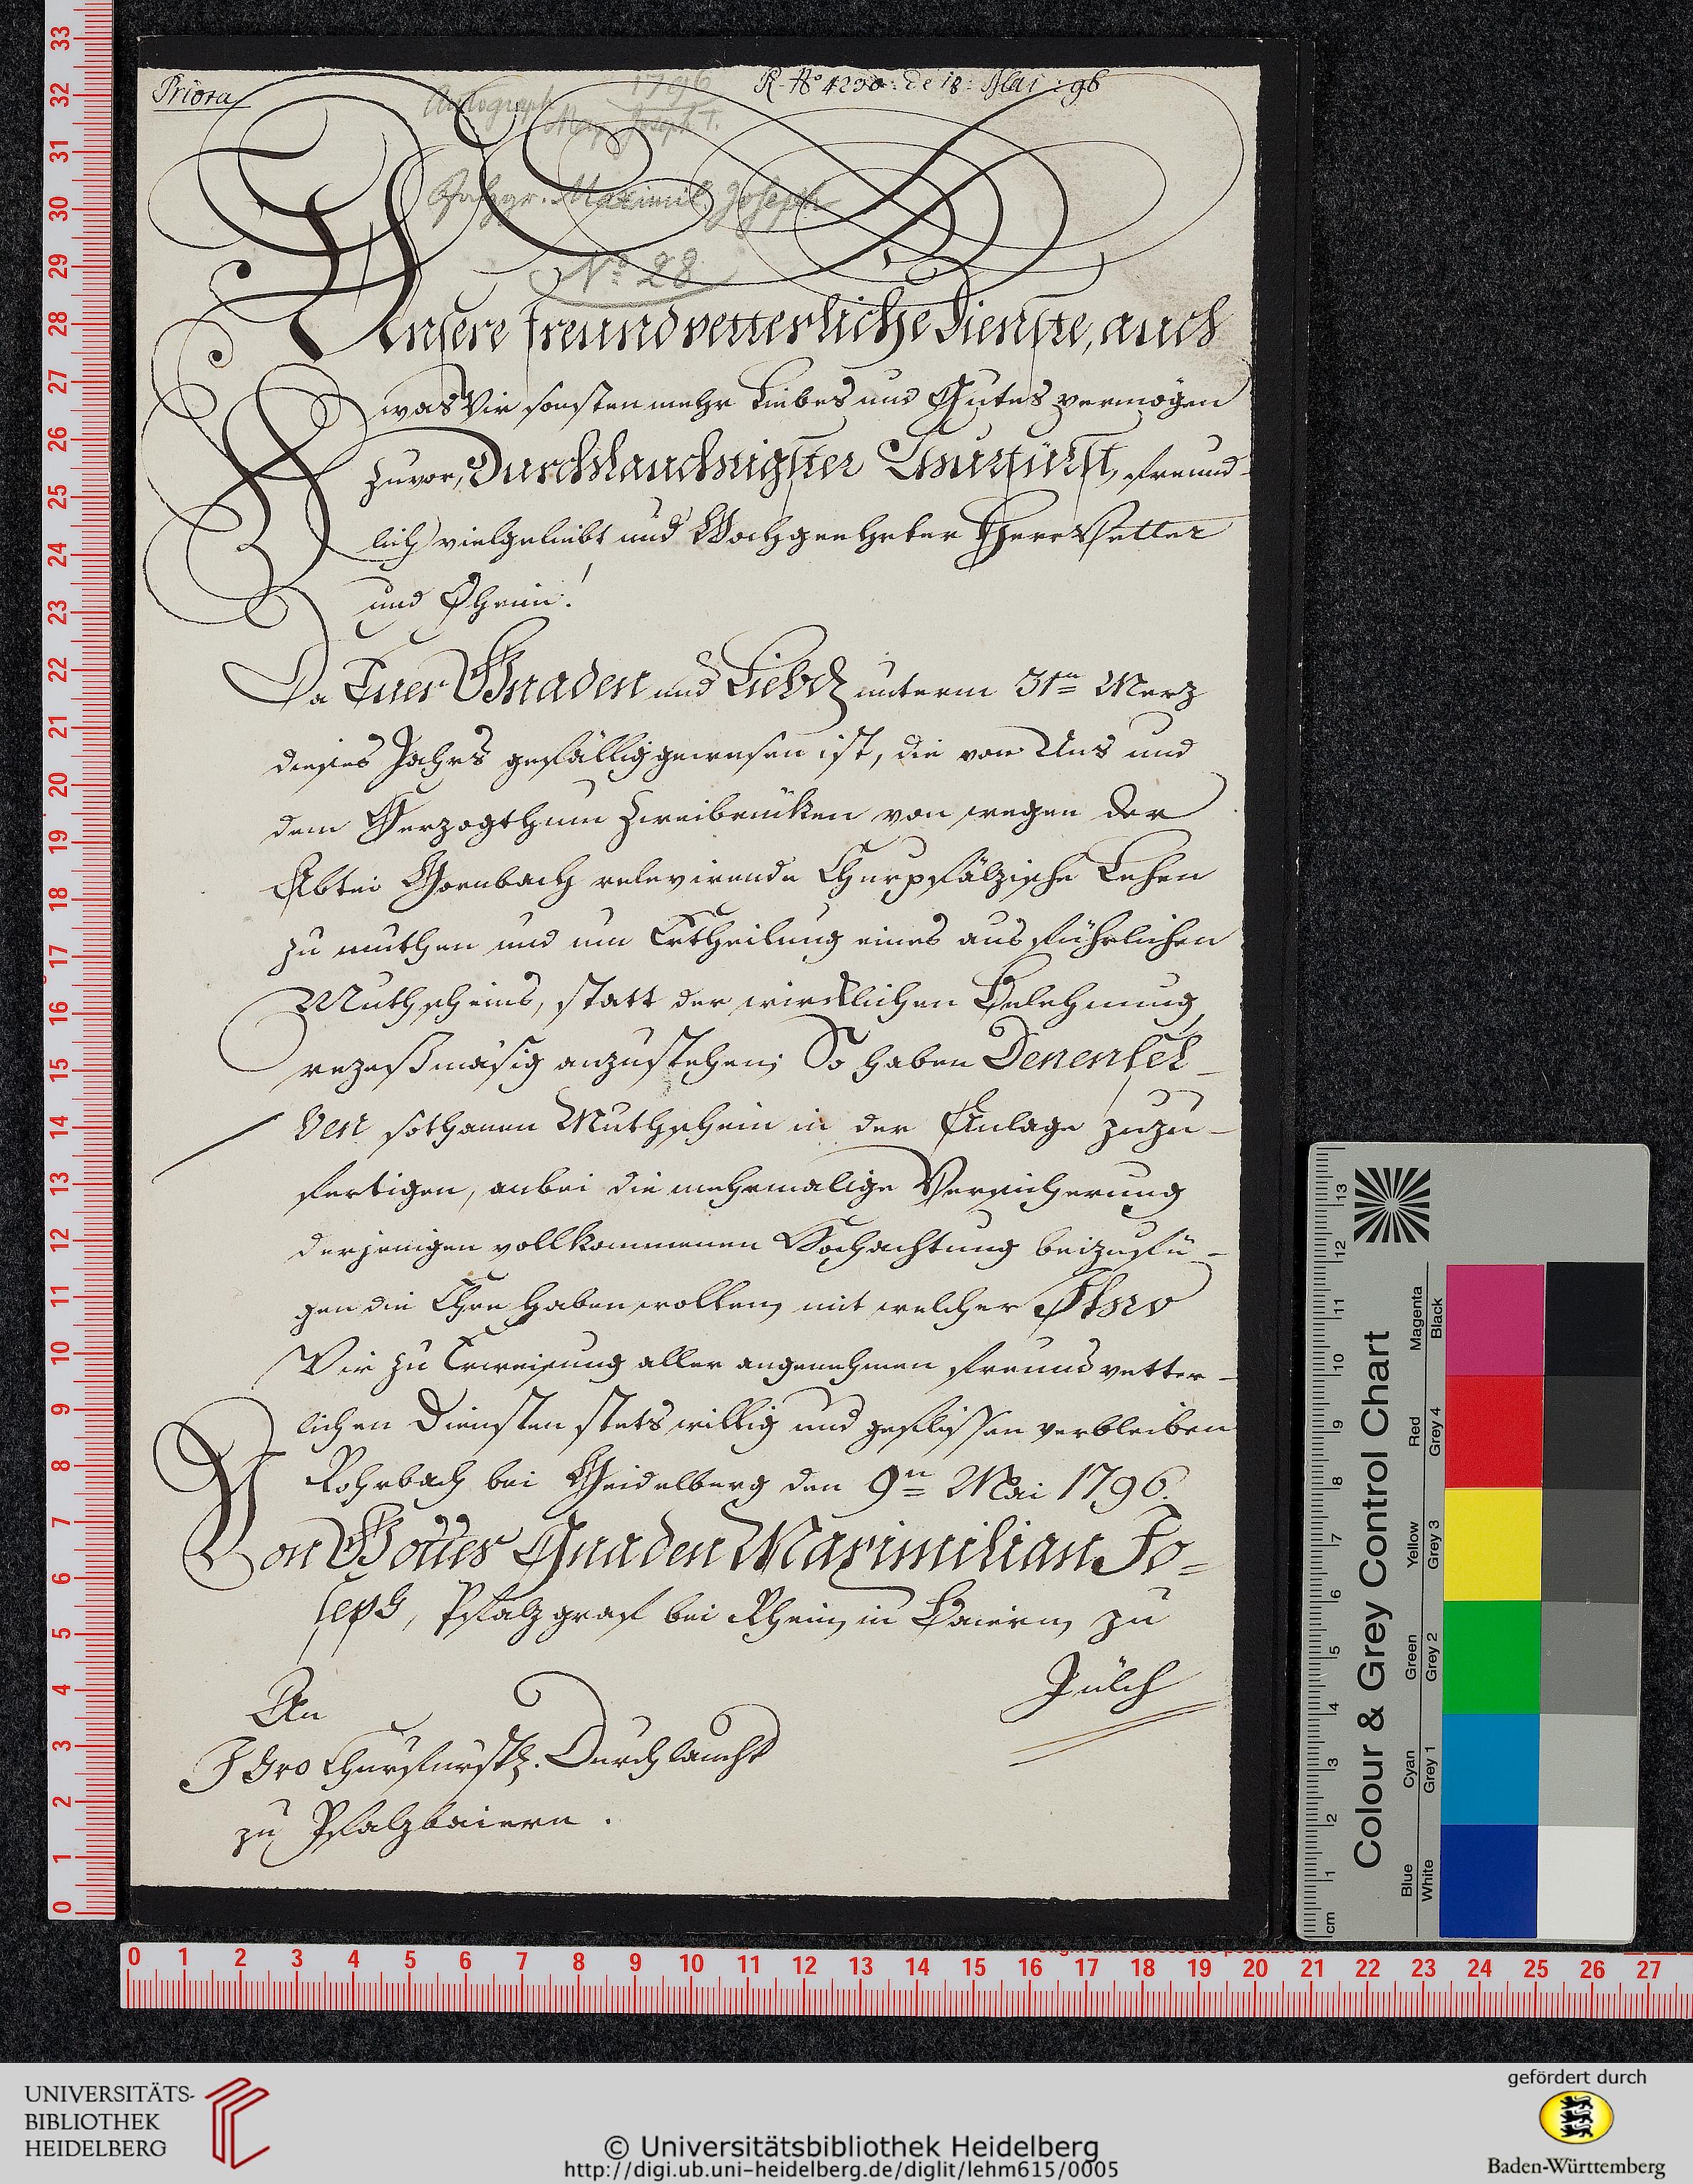 Priora
R. No 4230: de 18: Mai: 96
Autograph 1796
Max Joseph I.
Pfalzgr. Maximil. Joseph
No 28
Unsere freundvetterliche Dienste, auch
was Wir sonsten mehr Liebes und Gutes vermögen
zuvor, Durchlauchtigster Churfürst, freund-
lich vielgeliebt und Hochgeehrter Herr Vetter
und Oheim!
Da Euer Gnaden und Liebd unterm 31n Merz
dieses Jahrs gefällig gewesen ist, die von Uns und
dem Herzogthum Zweibrüken von wegen der
Abtei Hornbach relevirende Churpfälzische Lehen
zu muthen und um Ertheilung eines ausführlichen
Muthscheins, statt der wircklichen Belehnung,
rezeßmäsig anzustehen; So haben Denensel-
ben sothanen Muthschein in der Anlage zuzu-
fertigen, anbei die mehrmalige Versicherung
derjenigen vollkommenen Hochachtung beizufü-
gen die Ehre haben wollen, mit welcher Ihro
Wir zu Erweisung aller angenehmen freundvetter-
lichen Diensten stets willig und geflissen verbleiben
Rohrbach bei Heidelberg den 9n Mai 1796.
Von Gottes Gnaden Maximilian Jo=
seph, Pfalzgraf bei Rhein, in Baiern, zu
Jülch
An
Ihro Churfürstl. Durchlaucht
zu Pfalzbaiern.
33
32
31
30
29
28
27
26
25
24
23
22
21
20
19
18
17
16
15
14
13
12
11
10
9
8
7
6
5
4
3
2
1
0
0 1 2 3 4 5 6 7 8 9 10 11 12 13 14 15 16 17 18 19 20 21 22 23 24 25 26 27
Colour & Grey Control Chart
cm 1 2 3 4 5 6 7 8 9 10 11 12 13
Blue Cyan Green Yellow Red Magenta
White Grey 1 Grey 2 Grey 3 Grey 4 Black
UNIVERSITÄTS-
BIBLIOTHEK
HEIDELBERG
© Universitätsbibliothek Heidelberg
http://digi.ub.uni-heidelberg.de/diglit/lehm615/0005
gefördert durch
Baden-Württemberg